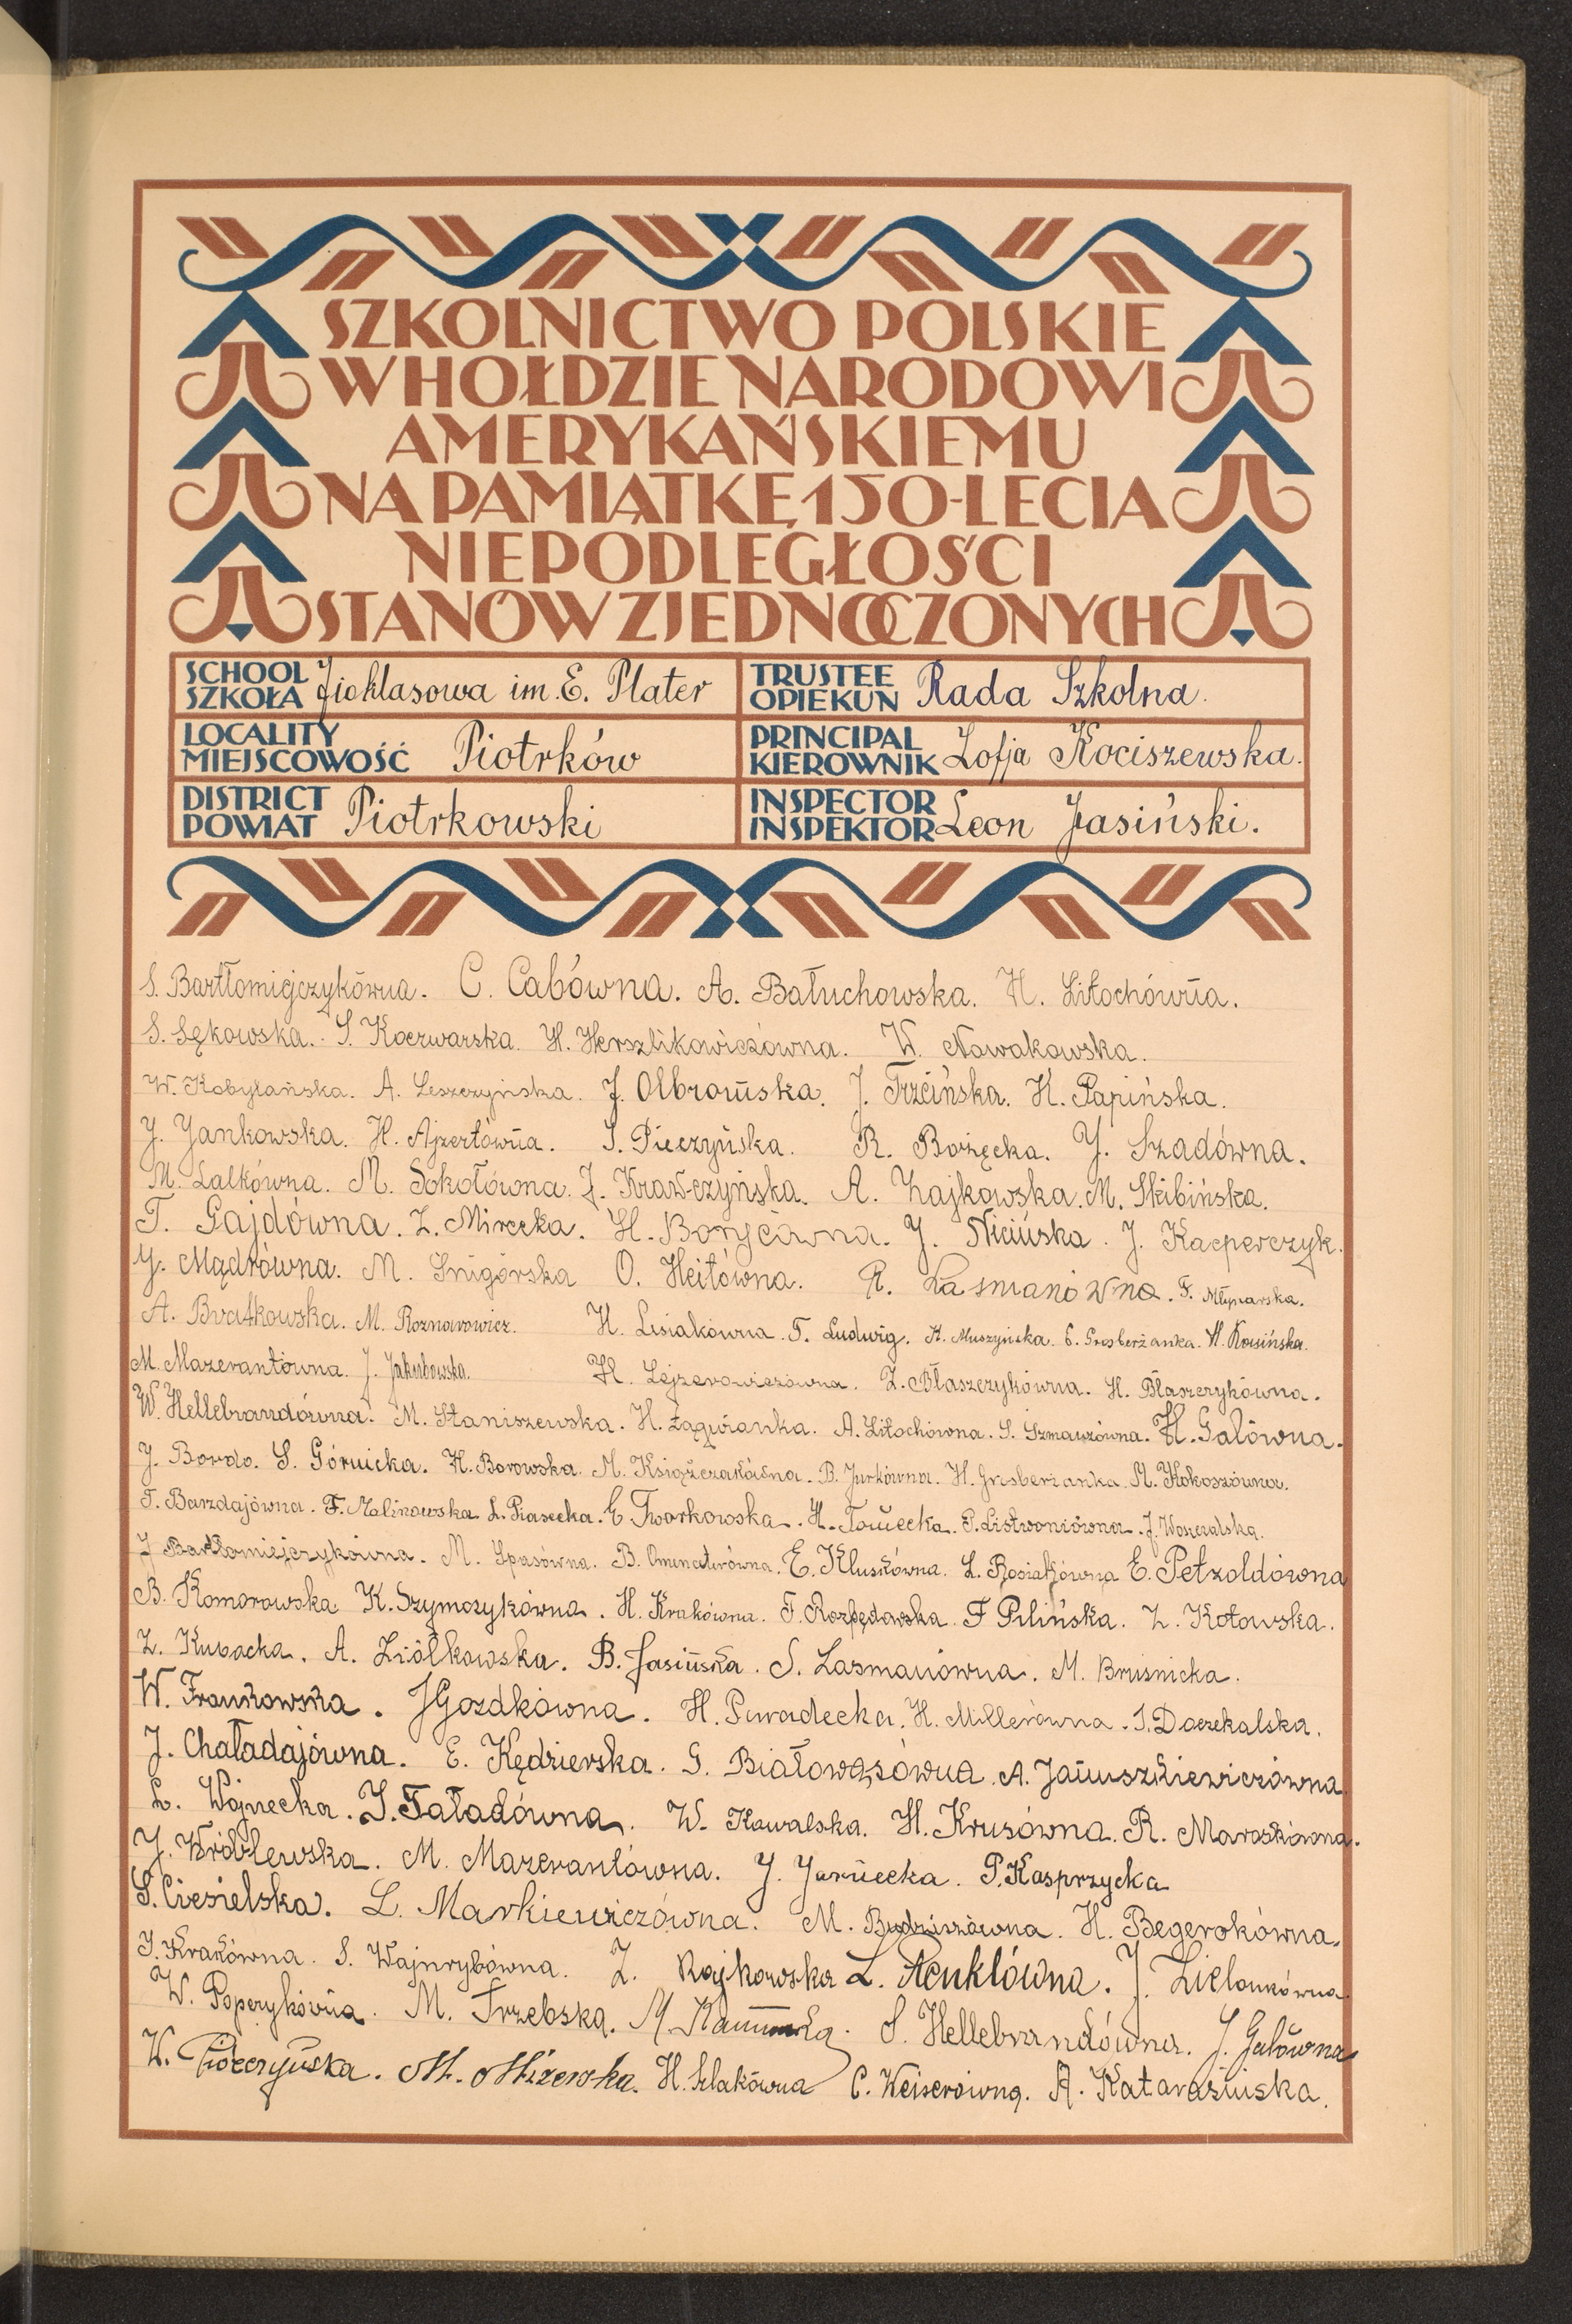 SZKOLNICTWO POLSKIE
W HOŁDZIE NARODOWI
AMERYKAŃSKIEMU
NA PAMIĄTKĘ 150-LECIA
NIEPODLEGŁOŚCI
STANÓW ZJEDNOCZONYCH
SCHOOL SZKOŁA 7ioklasowa im. E. Plater
TRUSTEE OPIEKUN Rada Szkolna.
LOCALITY MIEJSCOWOŚĆ Piotrków
PRINCIPAL KIEROWNIK Zofja Kociszewska.
DISTRICT POWIAT Piotrkowski
INSPECTOR INSPEKTOR Leon Jasiński.
S. Bartłomiejczykówna. C. Cabówna. A. Bałuchowska. H. Litochówna.
S. Sękowska. S. Koczwarska. H. Herszlikowiczówna. W. Nowakowska.
W. Kobylańska. A. Leszczyńska. J. Olbrowska. J. Trzcińska. K. Papińska.
J. Jankowska. H. Ajzertówna. S. Pieczyńska. R. Bożęcka. J. Szadówna.
M. Lalkówna. M. Sokołówna. J. Krawczyńska. A. Zajkowska. M. Skibińska.
T. Gajdówna. Z. Mirecka. H. Borycówna. J. Nicińska. J. Kacperczyk.
J. Mądrówna. M. Śnigórska O. Heitówna. R. Łasmanówna. F. Młynarska.
A. Bratkowska. M. Roznarowicz. H. Lisiakówna. T. Ludwig. H. Muszyńska. E. Grosberżanka. H. Kosińska.
M. Mazerantówna. J. Jakubowska. H. Lejzerowiczówna. Z. Błaszczykówna. H. Błaszczykówna.
W. Hellebrandówna. M. Staniszewska. H. Żągwianka. A. Litochówna. S. Szmaszówna. H. Galówna.
J. Bordo. S. Górnicka. H. Borowska. M. Książczakówna. B. Jurkówna. H. Grosberżanka. M. Kokoszówna.
T. Barzdajówna. F. Malinowska L. Piasecka. E. Tworkowska. H. Towecka. P. Listwoniówna. J. Woszczalska.
J. Bartłomiejczykówna. M. Spasówna. B. Omenaterówna. E. Kluskówna. L. Rosiakówna E. Petzoldówna
B. Komorowska K. Szymczykówna. H. Krakówna. F. Rozpędowska. F. Pilińska. Z. Kotowska.
Z. Kubacka. A. Ziółkowska. B. Jasińska. S. Lasmanówna. M. Brusnicka.
W. Frankowska. J Gozdkówna. H. Pawadecka. H. Millerówna. S. Doczekalska.
J. Chaładajówna. E. Kędzierska. G. Białowąsówna. A. Januszkiewiczówna.
L. Wojnecka. J. Faładówna. W. Kowalska. H. Krusówna. R. Moroskówna.
J. Wróblewska. M. Mazerantówna. J. Jarnecka. P. Kasprzycka
S. Ciesielska. L. Markiewiczówna. M. Budziszówna. H. Begerokówna.
J. Krakówna. S. Wajnrybówna. Z. Rajkowska L. Renklówna. J. Zielonkówna.
W. Poperykówna. M. Trzebska. S. Hellebrandówna. J. Galówna
W. M. H. Szlakówna C. Weiserówna. A. Katarasińska.